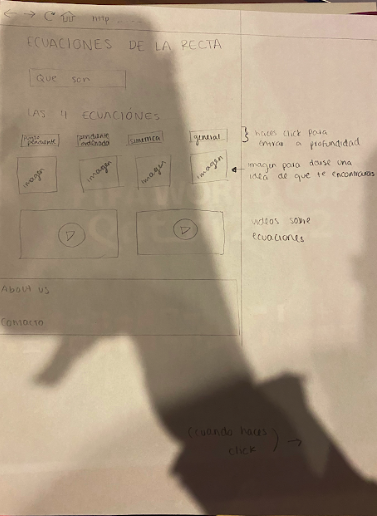 http
ECUACIONES DE LA RECTA
Que son
LAS 4 ECUACIÓNES
punto pendiente
pendiente ordenada
simétrica
general
haces click para
entrar a profundidad
imagen
imagen
imagen
imagen
imagen para darse una
idea de que te encontraras
videos sobre
ecuaciones
About us
Contacto
(cuando haces
click)